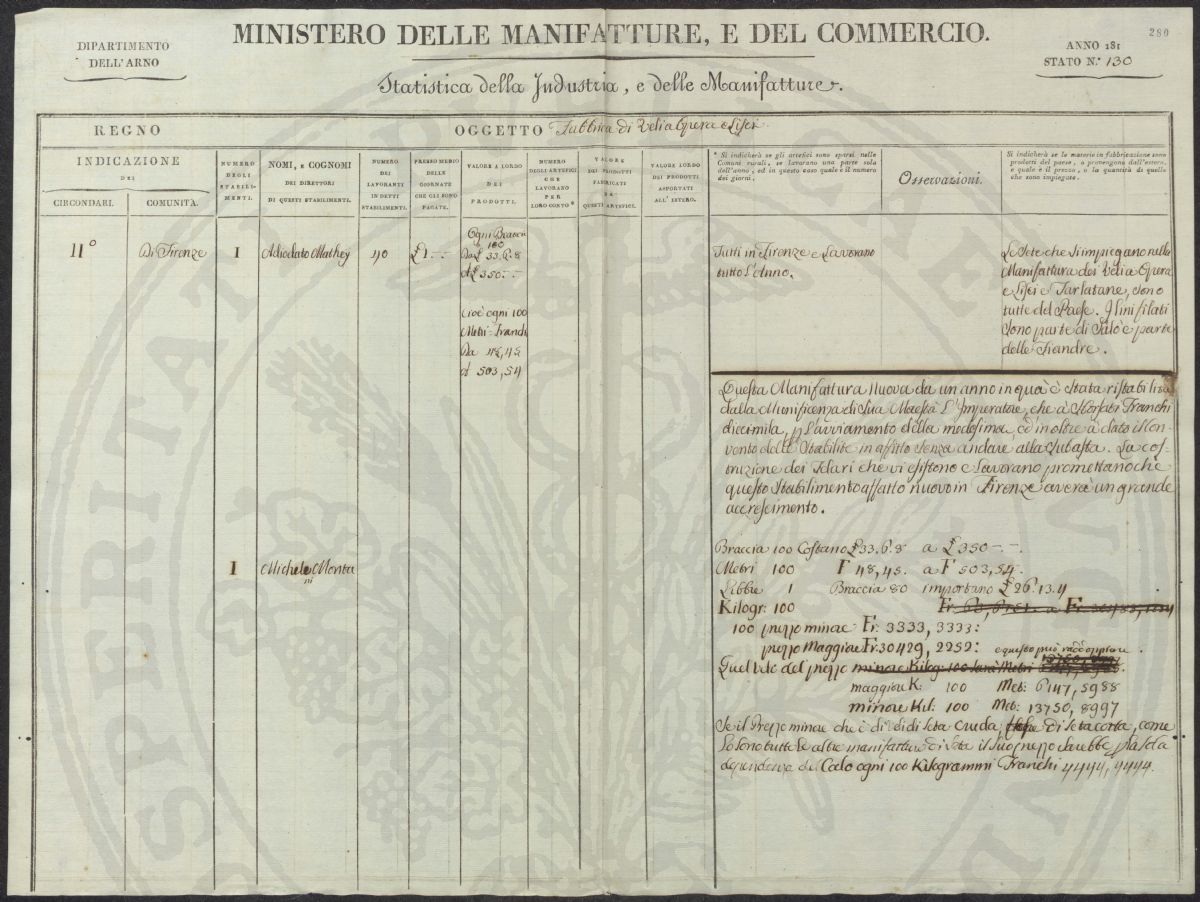 280
MINISTERO DELLE MANIFATTURE, E DEL COMMERCIO.
DIPARTIMENTO
DELL'ARNO
ANNO 181
STATO N.° 130
Statistica della Industria, e delle Manifatture.
REGNO
OGGETTO Fabbrica di Veli a Opera e Lisci.
INDICAZIONE
DEI
CIRCONDARI.
COMUNITÀ.
NUMERO
DEGLI
STABILI-
MENTI.
NOMI, E COGNOMI
DEI DIRETTORI
DI QUESTI STABILIMENTI.
NUMERO
DEI
LAVORANTI
IN DETTI
STABILIMENTI.
PRESSO MEDIO
DELLE
GIORNATE
CHE GLI SONO
PAGATE.
VALORE A LORDO
DEI
PRODOTTI.
NUMERO
DEGLI ARTEFICI
CHE
LAVORANO
PER
LORO CONTO*
VALORE
DEI PRODOTTI
FABBRICATI
DA
QUESTI ARTEFICI.
VALORE LORDO
DEI PRODOTTI
ASPORTATI
ALL'ESTERO.
* Si indicherà se gli artefici sono sparsi nelle
Comuni rurali, se lavorano una parte sola
dell'anno, ed in questo caso quale è il numero
dei giorni.
Osservazioni.
Si indicherà se le materie in fabbricazione sono
prodotti del paese, o provengono dall'estero,
e quale è il prezzo, o la quantità di quelle
che sono impiegate.
II°
Di Firenze
1
Adiodato Mathey
40
£ 1.--
Ogni Braccia
100
Da £ 33.6.8
A £ 350.--
Cioè ogni 100
Metri-Franchi
Da 48,45
A 503,54
Tutti in Firenze e Lavorano
tutto L'Anno.
Le Sete che si impiegano nella
Manifattura dei Veli a Opera
e Lisci e Tarlatane, sono
tutte del Paese. I lini filati
sono parte di Salò e parte
delle Fiandre.
Questa Manifattura nuova da un anno in quà è stata ristabilita
dalla Munificenza di Sua Maestà L'Imperatore, che à sborsati Franchi
diecimila, p l'avviamento della medesima, ed inoltre à dato il Con-
vento delle Stabilite in affitto senza andare alla Subasta. La co-
struzione dei Telari che vi esistono e Lavorano promettano che
questo Stabilimento affatto nuovo in Firenze averà un grande
accrescimento.
1
Michele Monta
ni
Braccia 100 Costano £ 33.6.8 a £ 350--.
Metri 100 F 48,45. a F 503,54.
Libbre 1 Braccia 80 importano £ 26.13.4
Kilogr: 100
100 prezzo minore Fr: 3333,3333:
prezzo Maggiore Fr: 30429,2252: e questo può raccoppiare.
Quel velo del prezzo minore Kilog: 100 sarà Metri
maggiore K: 100 Met: 6147,5988
minore Kil: 100 Met: 13750,8997
Se il Prezzo minore che è di veli di seta cruda, fosse di seta cotta, come
lo sono tutte le altre manifatture di seta il suo prezzo sarebbe p la sola
dependenza del Calo ogni 100 Kilogrammi Franchi 4444,4444.